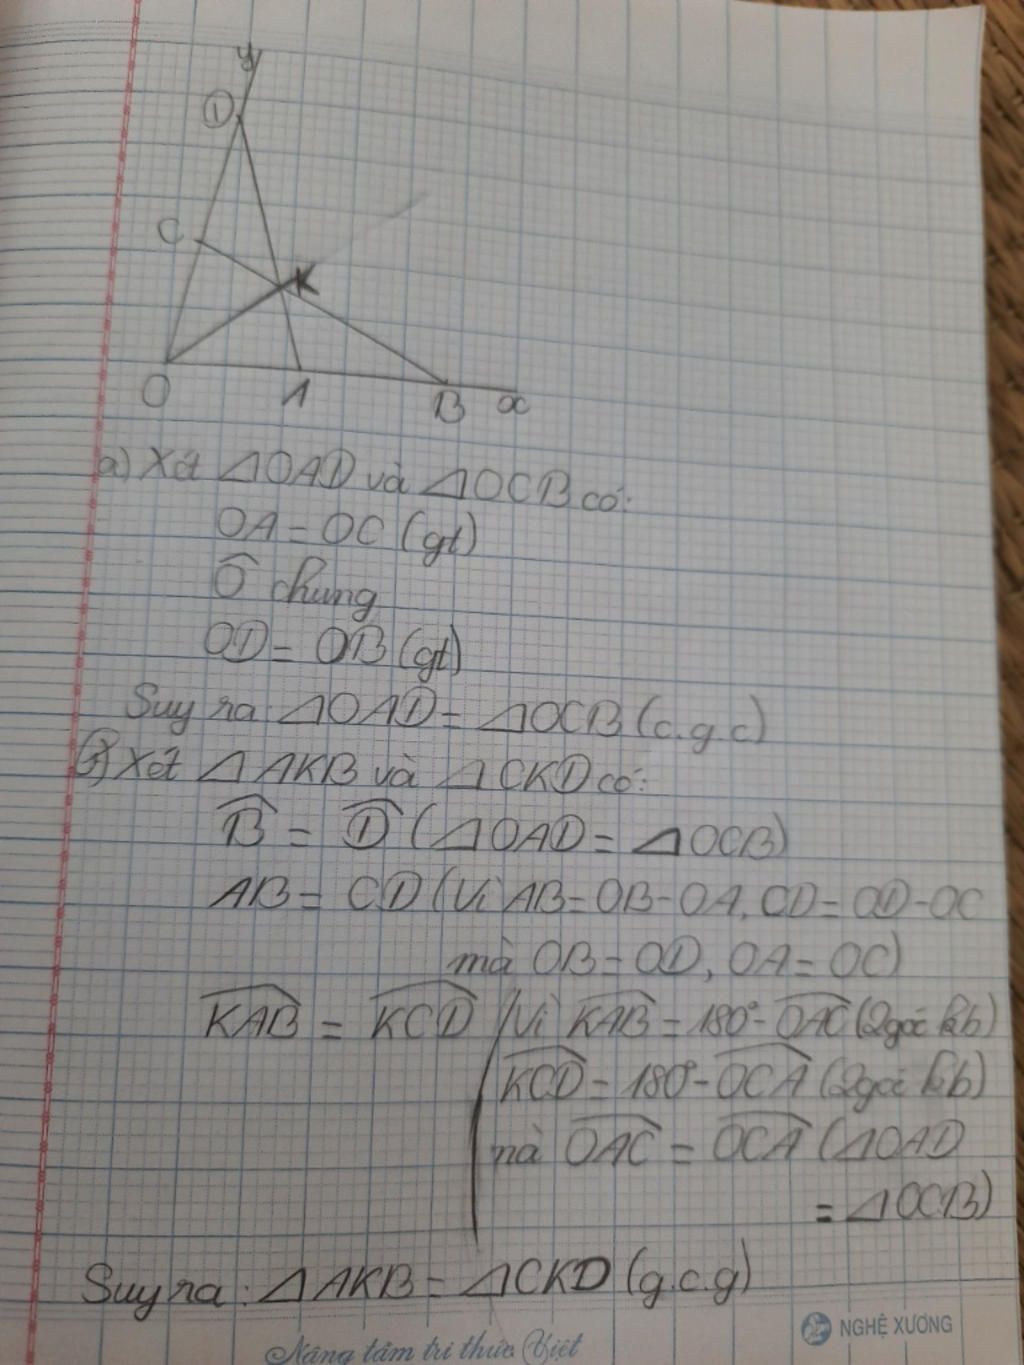 y
D
C
K
O A B x
a) Xét △OAD và △OCB có:
OA = OC (gt)
Ô chung
OD = OB (gt)
Suy ra: △OAD = △OCB (c.g.c)
b) Xét △AKB và △CKD có:
B̂ = D̂ (△OAD = △OCB)
AB = CD (Vì AB = OB - OA, CD = OD - OC
mà OB = OD, OA = OC)
K͡AB = K͡CD (Vì K͡AB = 180° - O͡AC (2góc kb)
K͡CD = 180° - O͡CA (2góc kb)
mà O͡AC = O͡CA (△OAD
= △OCB)
Suy ra: △AKB = △CKD (g.c.g)
NGHỆ XƯƠNG
Nâng tầm tri thức Việt